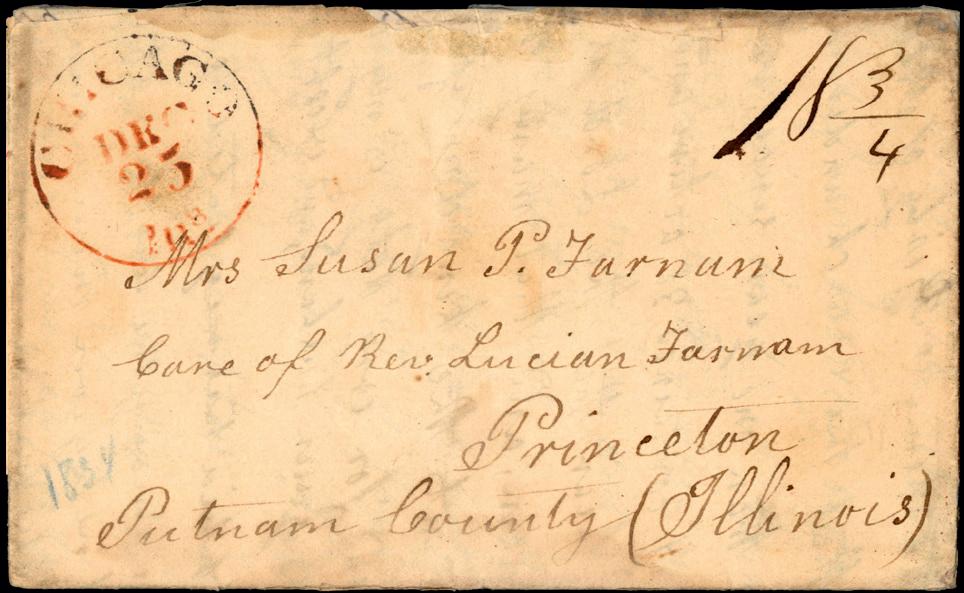 CHICAGO
DEC
25
18 3/4
Mrs Susan P. Farnam
Care of Rev. Lucian Farnam
Princeton
Putnam County (Illinois)